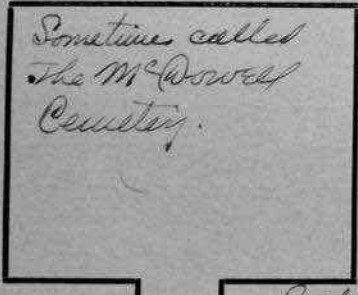 Sometimes called
The McDowell
Cemetery.